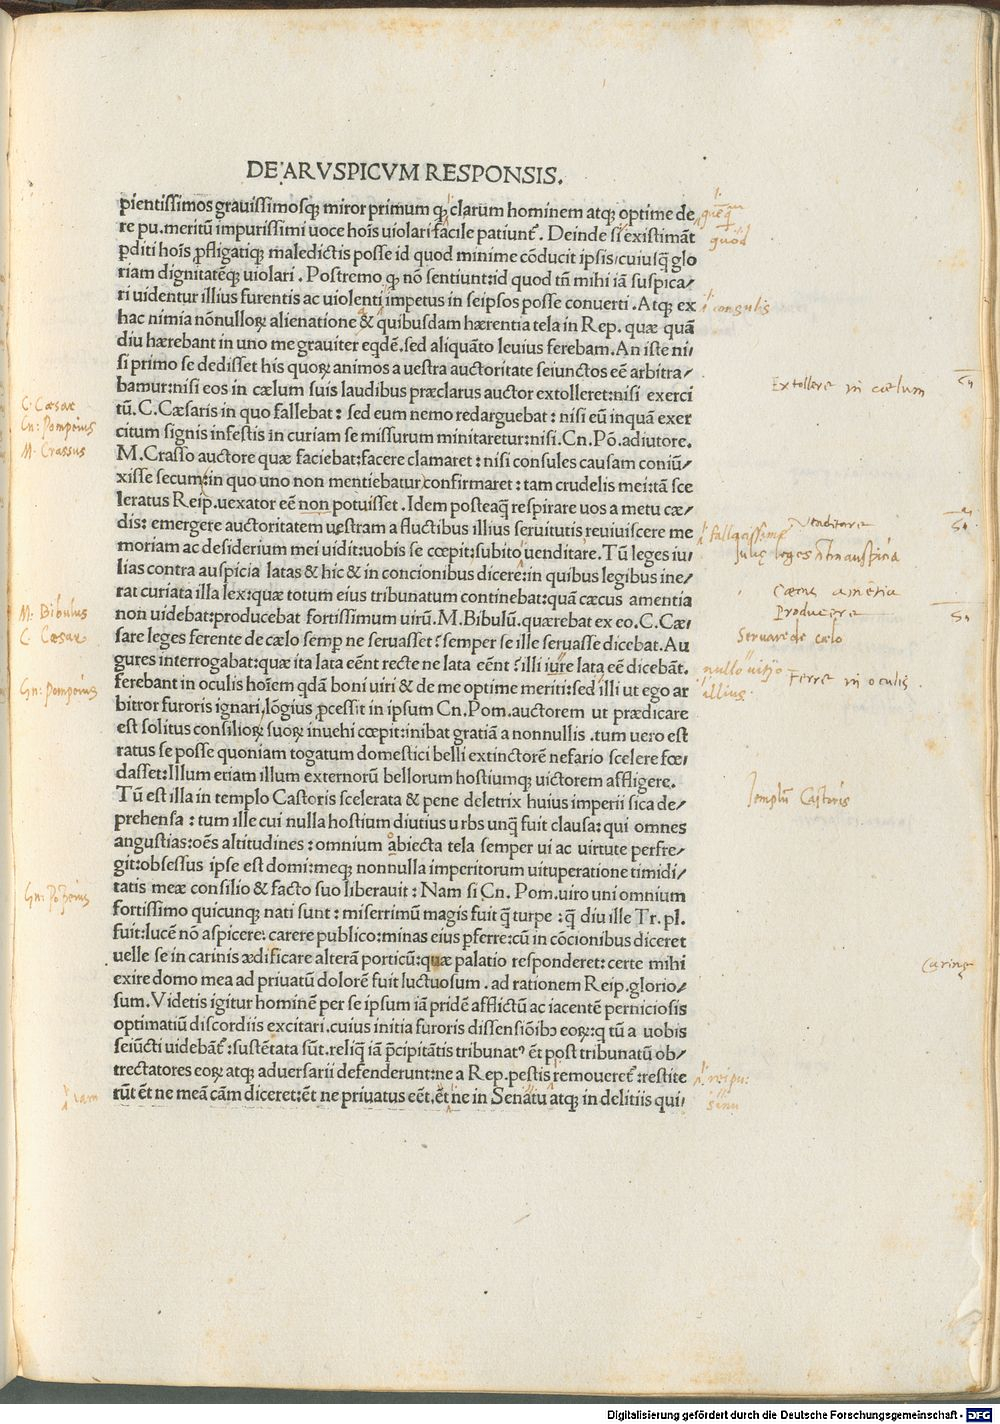 DE ARVSPICVM RESPONSIS.
pientissimos grauissimosq; miror primum q; clarum hominem atq; optime de
re pu. meritū impurissimi uoce hoīs uiolari facile patiunt᷑. Deinde si existimāt
ꝑditi hoīs ꝓfligatiq; maledictis posse id quod minime cōducit ipsis: cuiusq̄ glo
riam dignitatēq; uiolari. Postremo q; nō sentiunt: id quod tn̄ mihi iā suspica/
ri uidentur illius furentis ac uiolenti impetus in seipsos posse conuerti. Atq; ex
hac nimia nōnulloꝝ alienatione & quibusdam hærentia tela in Rep. quæ quā
diu hærebant in uno me grauiter eqdē. sed aliquāto leuius ferebam. An iste ni/
si primo se dedisset his quoꝝ animos a uestra auctoritate seiunctos eē arbitra/
bamur: nisi eos in cælum suis laudibus præclarus auctor extolleret: nisi exerci
tū. C. Cæsaris in quo fallebat: sed eum nemo redarguebat: nisi eū inquā exer
citum signis infestis in curiam se missurum minitaretur: nisi. Cn. Pō. adiutore.
M. Crasso auctore quæ faciebat: facere clamaret: nisi consules causam coniū/
xisse secum: in quo uno non mentiebatur confirmaret: tam crudelis mei: tā sce
leratus Reip. uexator eē non potuisset. Idem posteaq̄ respirare uos a metu cæ/
dis: emergere auctoritatem uestram a fluctibus illius seruitutis reuiuiscere me
moriam ac desiderium mei uidit: uobis se cœpit: subito uenditare. Tū leges iu/
lias contra auspicia latas & hic & in concionibus dicere: in quibus legibus ine/
rat curiata illa lex: quæ totum eius tribunatum continebat: quā cæcus amentia
non uidebat: producebat fortissimum uirū. M. Bibulū. quærebat ex eo. C. Cæ/
sare leges ferente de cælo semp ne seruasset? semper se ille seruasse dicebat. Au
gures interrogabat: quæ ita lata eēnt recte ne lata eēnt? illi iure lata eē dicebāt.
ferebant in oculis hoīem qdā boni uiri & de me optime meriti: sed illi ut ego ar
bitror furoris ignari. lōgius ꝓcessit in ipsum Cn. Pom. auctorem ut prædicare
est solitus consilioꝝ suoꝝ inuehi cœpit: inibat gratiā a nonnullis. tum uero est
ratus se posse quoniam togatum domestici belli extinctorē nefario scelere fœ/
dasset: Illum etiam illum externorū bellorum hostiumq; uictorem affligere.
Tū est illa in templo Castoris scelerata & pene deletrix huius imperii sica de/
prehensa: tum ille cui nulla hostium diutius urbs unq̄ fuit clausa: qui omnes
angustias: oēs altitudines: omnium abiecta tela semper ui ac uirtute perfre/
git: obsessus ipse est domi: meq; nonnulla imperitorum uituperatione timidi/
tatis meæ consilio & facto suo liberauit: Nam si Cn. Pom. uiro uni omnium
fortissimo quicunq; nati sunt: miserrimū magis fuit q̄ turpe: q̄ diu ille Tr. pl.
fuit: lucē nō aspicere: carere publico: minas eius ꝑferre: cū in cōcionibus diceret
uelle se in carinis ædificare alterā porticū: quæ palatio responderet: certe mihi
exire domo mea ad priuatū dolorē fuit luctuosum. ad rationem Reip. glorio/
sum. Videtis igitur hominē per se ipsum iā pridē afflictū ac iacentē perniciosis
optimatiū discordiis excitari. cuius initia furoris dissensiōibꝫ eoꝝ: q tū a uobis
seiūcti uidebāt᷑: sustētata sūt. reliq̄ iā p̄cipitātis tribunatꝰ ēt post tribunatū ob/
trectatores eoꝝ atq; aduersarii defenderunt: ne a Rep. pestis remoueret᷑: restite
rūt ēt ne meā cām diceret: ēt ne priuatus eēt. ēt ne in Senātu atq; in delitiis qui/
quod
consulis
Extollere in cælum
C. Cæsar
Cn: Pompeius
M. Crassus
Venditare
fallacissime
Iulię leges ɔtra auspicia
cæcus amētia
Producere
Seruare de cælo
M. Bibulus
C. Cæsar
nullo uitio
Ferre in oculis
illius
Gn: Pompeius
Templū Castoris
Gn: Pōpeius
Carinę
reipu:
sinu
tam
Digitalisierung gefördert durch die Deutsche Forschungsgemeinschaft - DFG